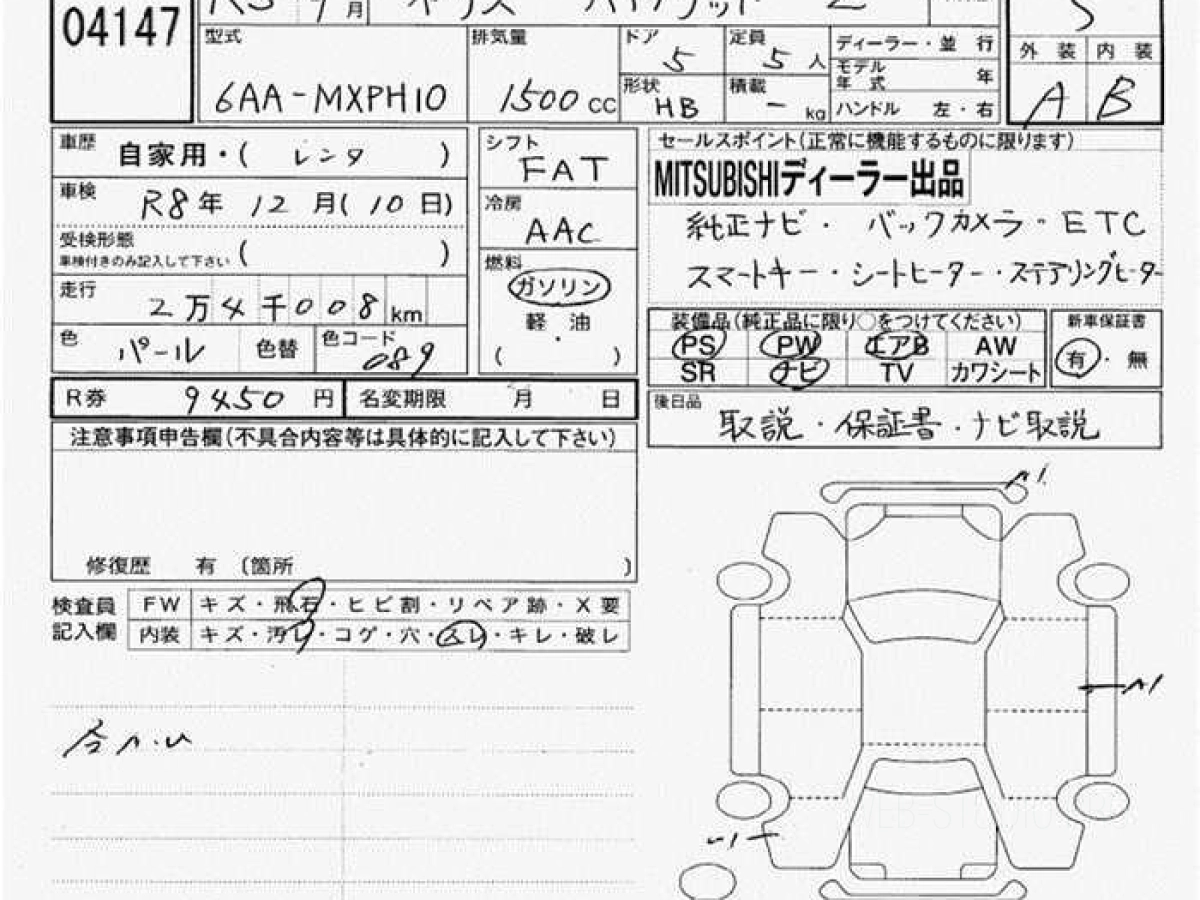 04147
月
型式
6AA-MXPH10
排気量
1500 cc
ドア
5
定員
5 人
形状
HB
積載
- kg
ディーラー・並 行
モデル年式 年
ハンドル 左・右
外 装 内 装
A B
車歴
自家用・( レンタ )
車検
R8年 12 月( 10 日)
受検形態
車検付きのみ記入して下さい ( )
走行
2万4千008 km
色
パール
色替
色コード
089
シフト
FAT
冷房
AAC
燃料
ガソリン
軽・油
( )
セールスポイント(正常に機能するものに限ります)
MITSUBISHIディーラー出品
純正ナビ・バックカメラ・ETC
スマートキー・シートヒーター・ステアリングヒーター
装備品(純正品に限り○をつけてください)
PS PW エアB AW
SR ナビ TV カワシート
新車保証書
有・無
R券 9450 円
名変期限 月 日
後日品
取説・保証書・ナビ取説
注意事項申告欄(不具合内容等は具体的に記入して下さい)
修復歴 有 〔箇所 )
検査員記入欄
FW キズ・飛石・ヒビ割・リペア跡・X要
内装 キズ・汚レ・コゲ・穴・スレ・キレ・破レ